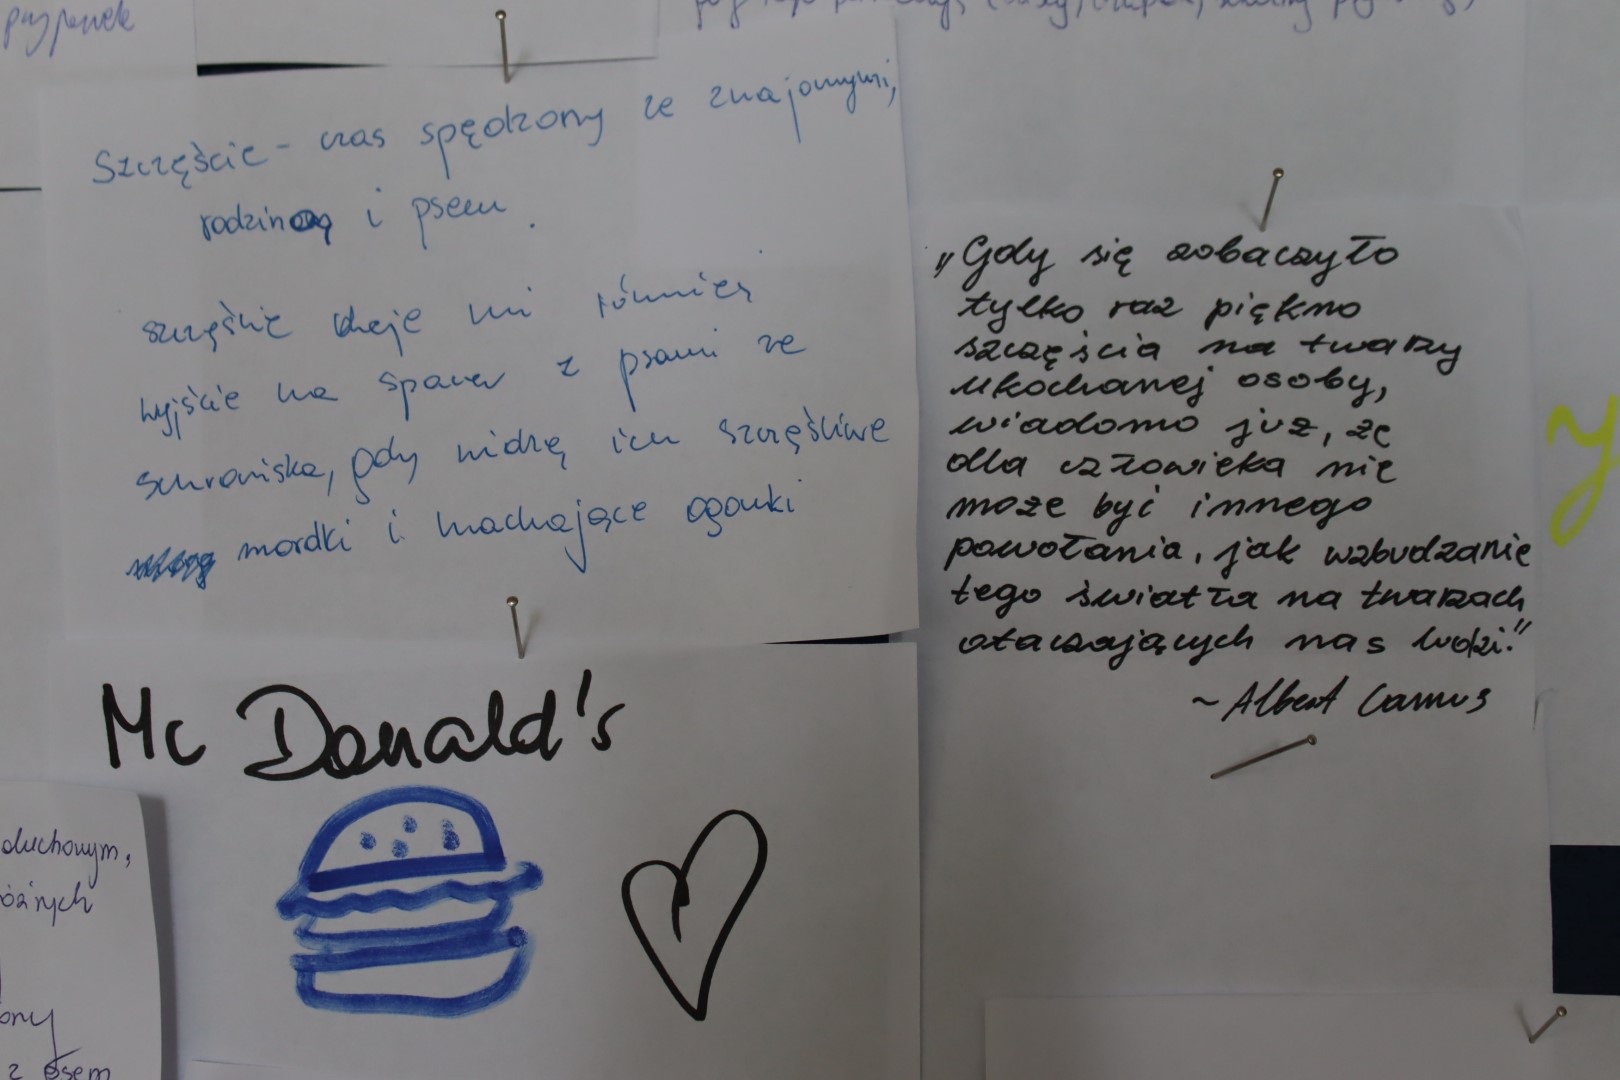 przypanek
Szczęście - czas spędzony ze znajomymi,
rodziną i psem.
szczęście daje mi również
wyjście na spacer z psami ze
schroniska, gdy widzę ich szczęśliwe
mordki i machające ogonki
Mc Donald's
„Gdy się zobaczyło
tylko raz piękno
szczęścia na twarzy
ukochanej osoby,
wiadomo już, że
dla człowieka nie
może być innego
powołania, jak wzbudzanie
tego światła na twarzach
otaczających nas ludzi."
~ Albert Camus
y
duchowym,
óżnych
ony
z psem